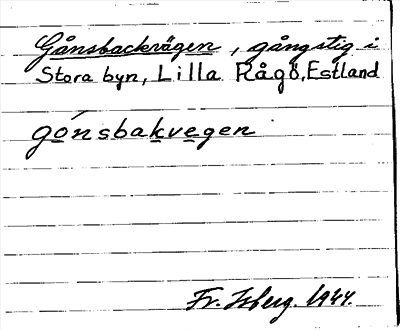 Gånsbackvägen, gångstig i
Stora byn, Lilla Rågö, Estland
gónsbakvegen
Fr. Isberg. 1944.